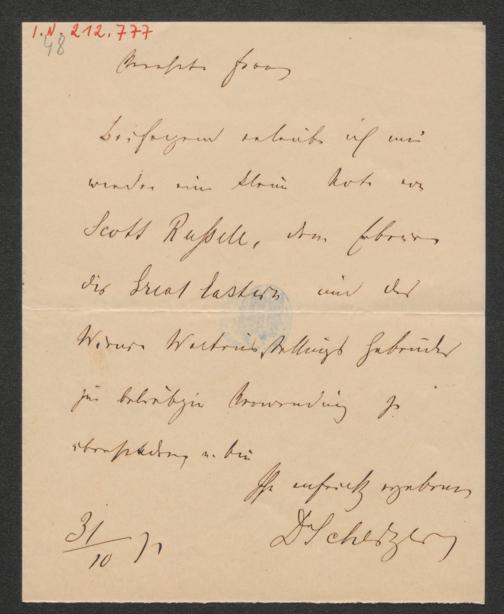 I.N. 212.777
48
Verehrte Frau
Beifolgend erlaube ich mir
wieder eine kleine Note von
Scott Russell, dem Erbauer
des Great Eastern und des
Wiener Weltausstellungs Gebäudes
zur beliebigen Verwendung zu
übersenden u. bin
Ihr aufrichtig ergebener
Dr Scherzer
31/10 71